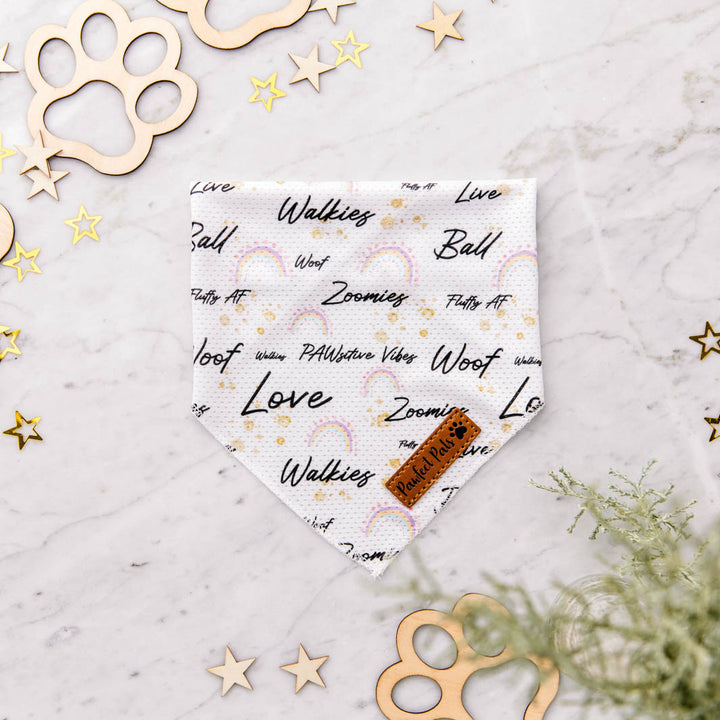 Live Fluffy AF Live
Walkies
Ball Woof Ball
Fluffy AF Zoomies Fluffy AF
Woof Walkies PAWsitive Vibes Woof Walkies
Love Zoomies
Fluffy
Walkies
Pawfect Pals
Woof
Zoomies